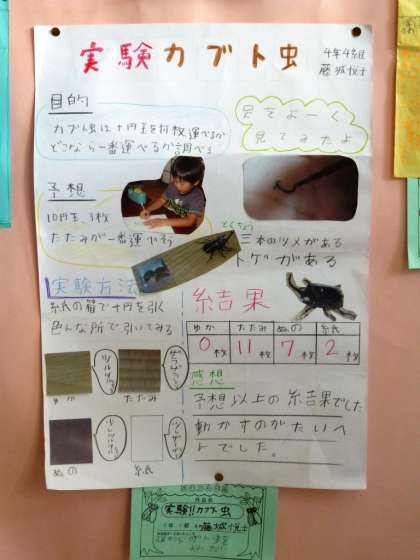 実験カブト虫
4年4組
藤城悦士
目的
カブト虫は十円玉を何枚運べるか
どこなら一番運べるか調べる
足をよーく
見てみたよ
予想
10円玉、3枚
たたみが一番運べそう
とくちょう
三本のツメがある
トゲがある
実験方法
糸氏の箱で十円を引く
色んな所で引いてみる
ゆか
たたみ
ぬの
紙
結果
ゆか たたみ ぬの 紙
0枚 11枚 7枚 2枚
感想
予想以上の結果でした
動かすのがたいへ
んでした。
実験!!カブト虫
藤城悦士